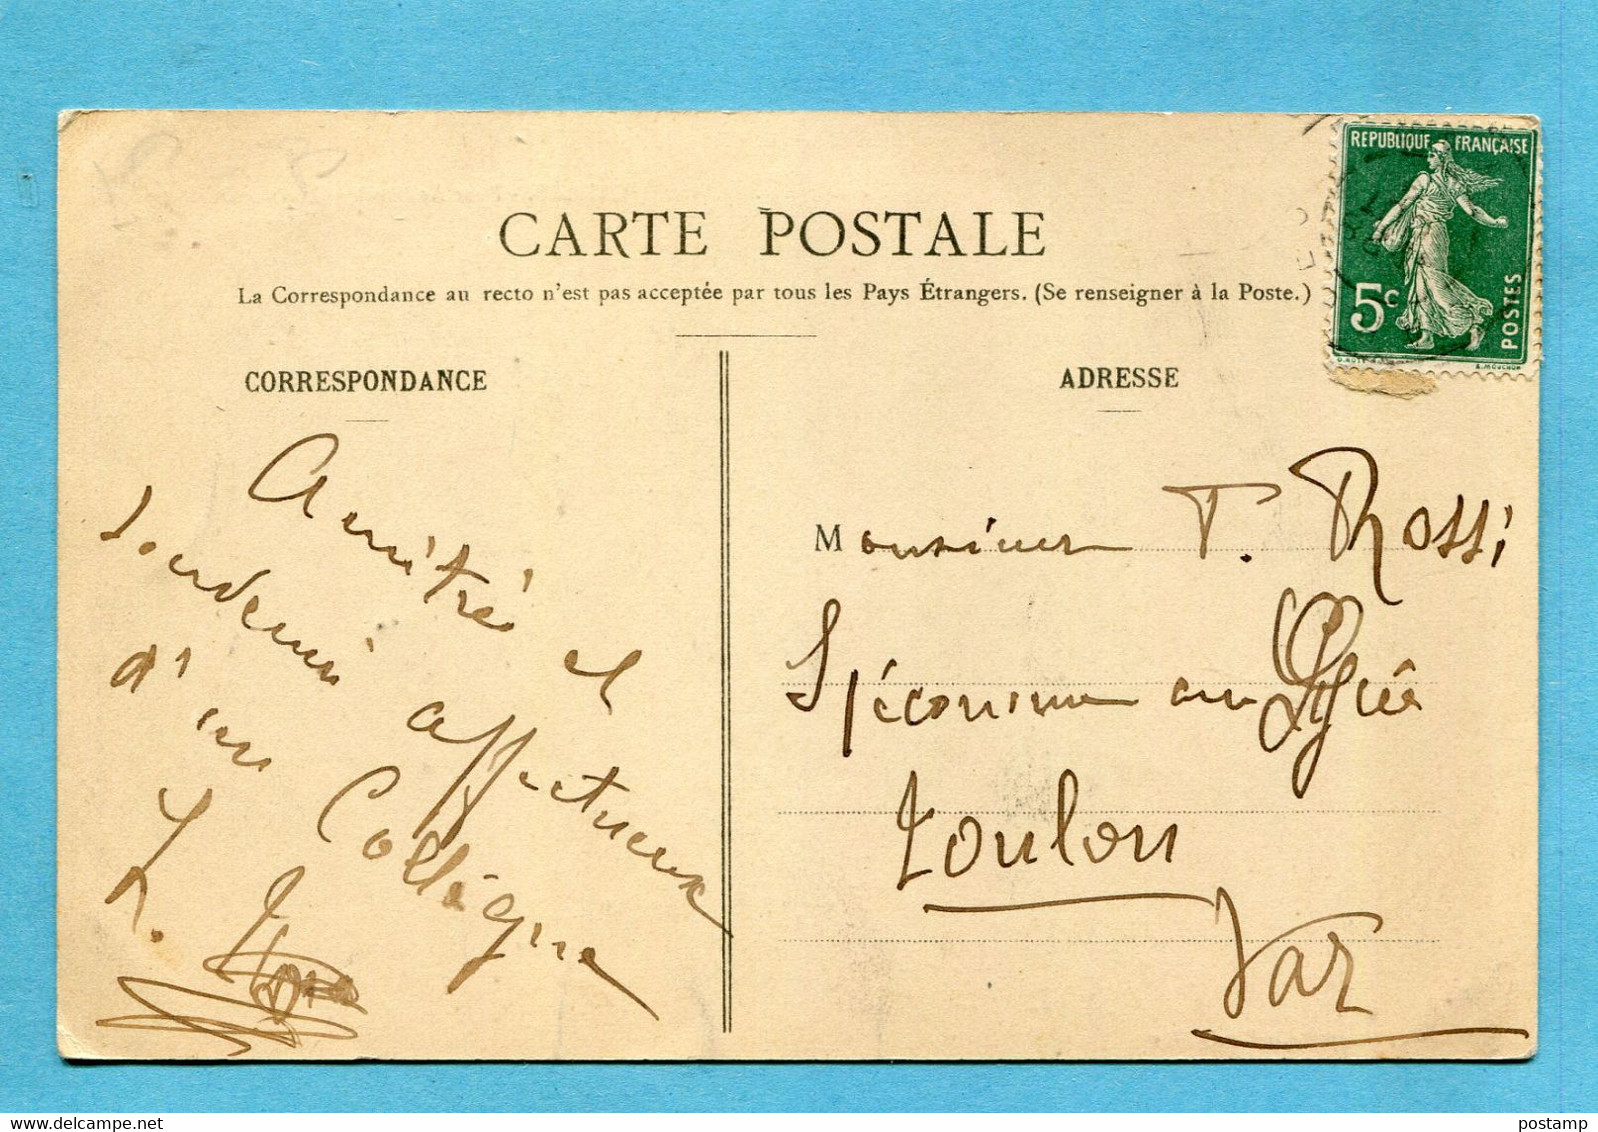 CARTE POSTALE
La Correspondance au recto n'est pas acceptée par tous les Pays Étrangers. (Se renseigner à la Poste.)
CORRESPONDANCE
Amitiés et
souvenir affectueux
d'un Collègue
L.
ADRESSE
Monsieur T. Rossi
au Lycée
Toulon
Var
REPUBLIQUE FRANÇAISE
5c
POSTES
postamp